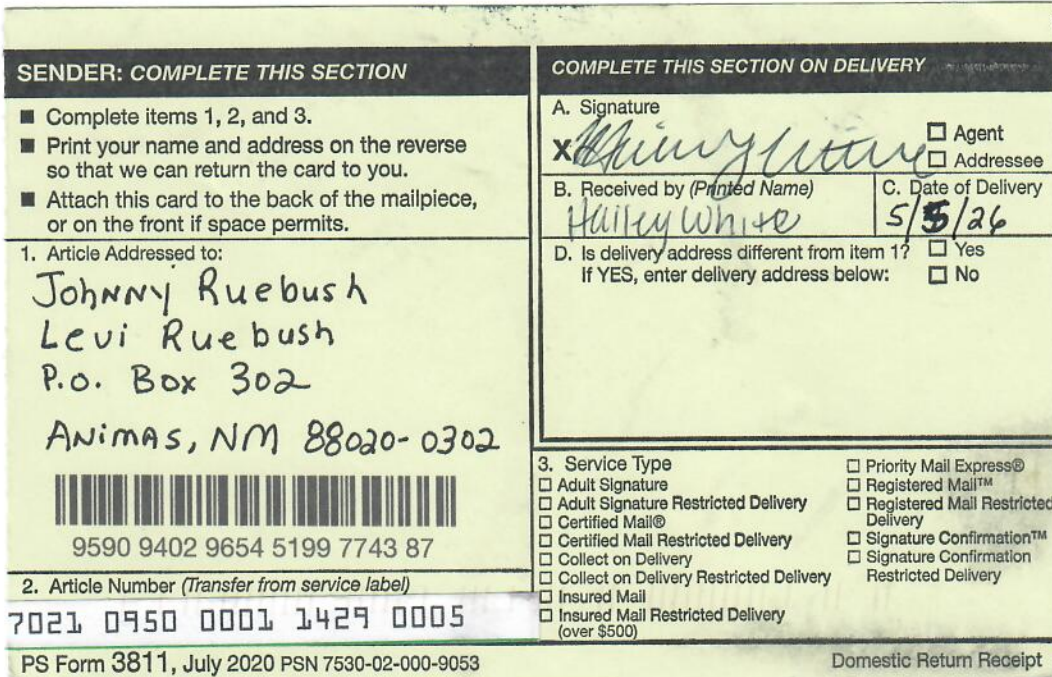 SENDER: COMPLETE THIS SECTION
■ Complete items 1, 2, and 3.
■ Print your name and address on the reverse
so that we can return the card to you.
■ Attach this card to the back of the mailpiece,
or on the front if space permits.
1. Article Addressed to:
Johnny Ruebush
Levi Ruebush
P.O. Box 302
Animas, NM 88020-0302
9590 9402 9654 5199 7743 87
2. Article Number (Transfer from service label)
7021 0950 0001 1429 0005
PS Form 3811, July 2020 PSN 7530-02-000-9053
COMPLETE THIS SECTION ON DELIVERY
A. Signature
X
☐ Agent
☐ Addressee
B. Received by (Printed Name)
Hailey White
C. Date of Delivery
5/5/26
D. Is delivery address different from item 1? ☐ Yes
If YES, enter delivery address below: ☐ No
3. Service Type
☐ Adult Signature
☐ Adult Signature Restricted Delivery
☐ Certified Mail®
☐ Certified Mail Restricted Delivery
☐ Collect on Delivery
☐ Collect on Delivery Restricted Delivery
☐ Insured Mail
☐ Insured Mail Restricted Delivery
(over $500)
☐ Priority Mail Express®
☐ Registered Mail™
☐ Registered Mail Restricted
Delivery
☐ Signature Confirmation™
☐ Signature Confirmation
Restricted Delivery
Domestic Return Receipt